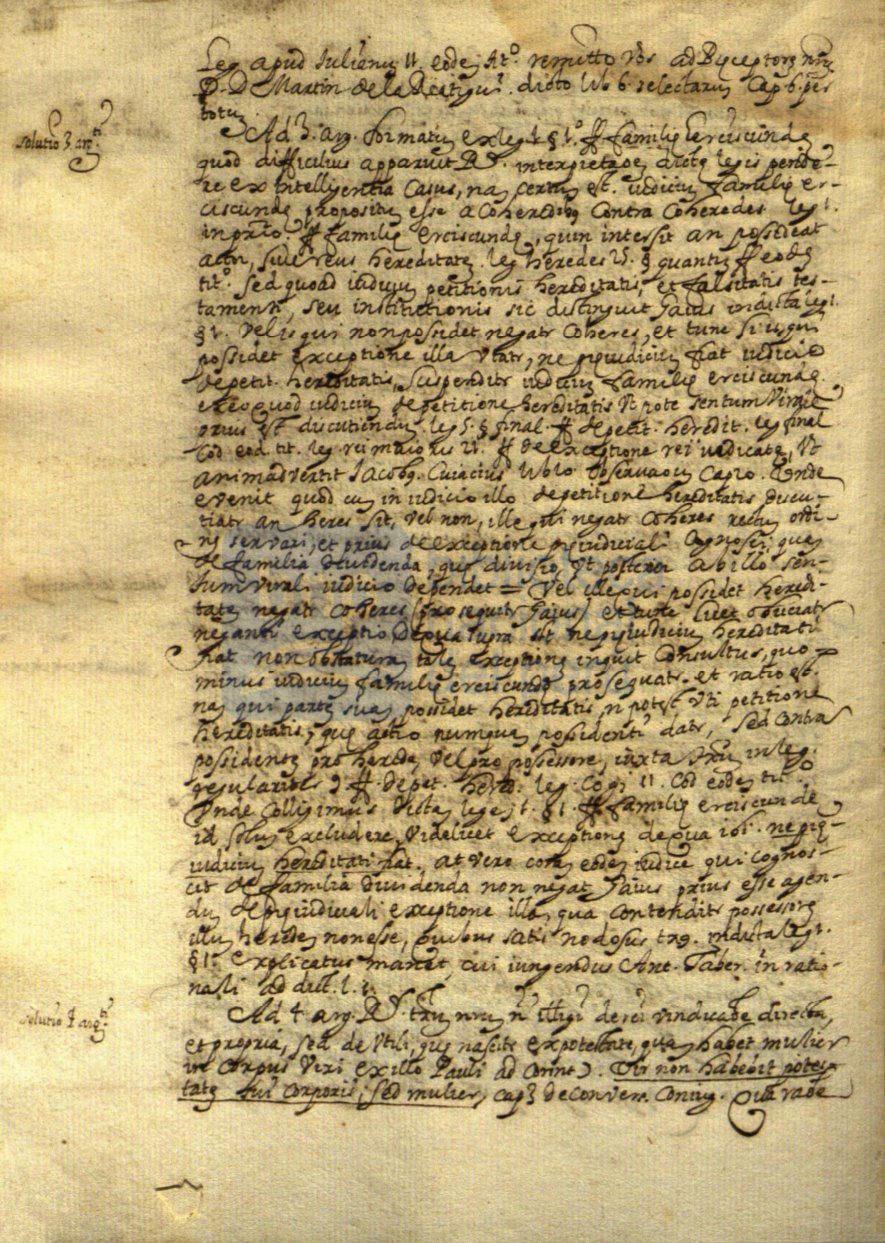 Leg. apud Julianu 11. eode tto. remitto vos ad Præceptore nru
D. D Martin de la Reatigui. dicto lib 6. selectaru Cap. 6. per
totu
solutio 3 arti
Ad 3. arg. formatu ex leg. 1 § 1.o ff familię erciscundę
quod difficilius apparuit R. interpretaoę dictę legis pende-
re ex intelligentia Casus, na certu est iudiciu familię er-
ciscundę propositu esse a Coheredibq Contra Coheredes leg 1.
in prio ff familię erciscundę, quin intersit an possideat
actr, sive reus hereditate. leg heredes 25. § quantis ff eode
tito. sed quoad iudiciu petitionis hereditatis, et falsitatis tes-
tamenti, seu institutionis sic distinguit Gaius in dicta leg 1.
§ 1. Vel is qui non possidet negatr Coheres, et tunc si is, qui
possidet exceptione illa vtatr, ne pręiudiciu fiat iudicio
de petit. hereditatis, suspenditr iudiciu familię erciscundę.
ex eo quod iudiciu de petitione hereditatis vt pote Centumvirale
prius est discutiendu leg 5. § final ff de petit. heredit. leg final
Cod eod. tit. leg. rei maioris 25. ff de exceptione rei iudicatę, Vt
animadvertit Jacobq. Cuiacius lib 10 observaou Cap 10. Unde
evenit quod cu in iudicio illo de petitione hereditatis discu-
tiatr an heres sit, vel non, ille qui negatr Coheres rectu ordi-
ne servari, et prius de exceptione pręiudiciali Cognosci, qua
de familia dividenda, quę divisio, vt posterior ab illo Cen-
tumvirali iudicio dependet = Vel ille qui possidet heredi-
tate negatr Coheres (prosequitr Gaius) et tunc licet obiiciatr
neganti exceptio de qua supra st. ne pręiudiciu hereditati
fiat non obstatura tale exceptione inquit Consultus, quo
minus iudiciu familię erciscundę prosequatr. et ratio est.
na qui parte sua possidet hereditatis, n potest vti petitione
hereditatis, quę actio numqua possidenti datr, sed contra
possidente pro herede, vel pro possessore, iuxta tru in leg.
regulariter 9 ff. de pet. hered. leg. Cogi 11. Cod eode tit.
Unde Colligimus dicta lege 1. § 1. ff familię erciscundę
id solu excludere, videlicet exceptione de qua ibi. ne pręiu-
iudiciu hereditati fiat. at vero cora eode iudice qui cognos-
cit de familia dividenda non negat Gaius prius esse agen-
du de pręiudiciali exceptione illa, qua contenditr possessore
illu herede non esse, quibus satis nodosus trq. in dicta leg 1.
§ 1. explicatus manet, cui iungendus Ant. Faber. in ratio-
nali ad dict. l. 1.
solutio 4 argti
Ad 4. arg. R. tru nru n illigi de rei vindicaoe directa,
et propria, sed de vtili, quę nascitr ex potestate, qua habet mulier
in Corpus Viri ex illo Pauli ad Corint 7. Vir non habebit potes-
tate sui corporis, sed mulier, cap 3 de conver. Coniug. Qua raoe